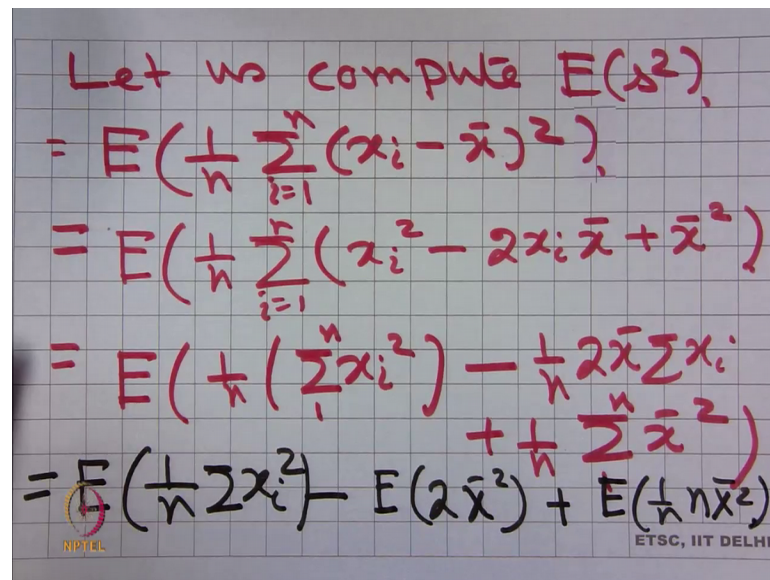 Let us compute E(s²).
= E(1/n Σⁿᵢ₌₁ (xᵢ - x̄)²).
= E(1/n Σⁿᵢ₌₁ (xᵢ² - 2xᵢx̄ + x̄²)
= E(1/n (Σⁿ₁ xᵢ²) - 1/n 2x̄ Σxᵢ
+ 1/n Σⁿ x̄²)
= E(1/n Σxᵢ²) - E(2x̄²) + E(1/n nx̄²)
NPTEL
ETSC, IIT DELHI